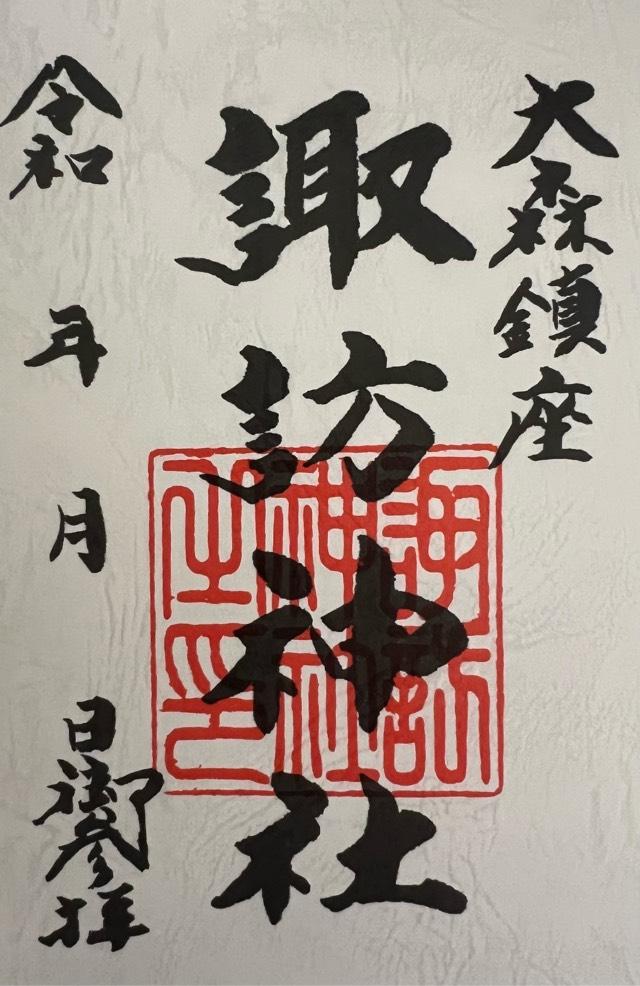 大森鎮座
諏訪神社
令和 年 月 日御参拝
諏訪
神社
之印